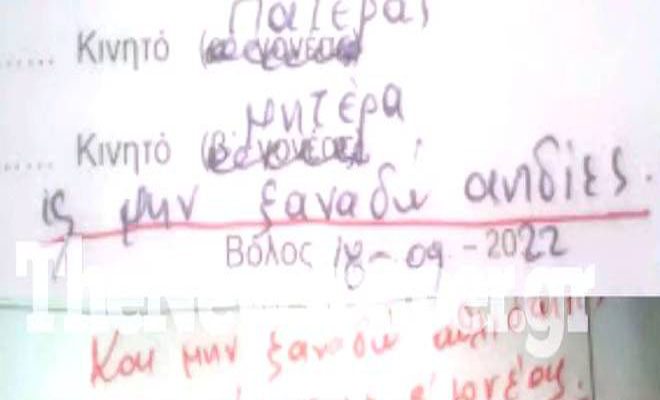 Πατέρας
..... Κινητό (α' γονέας)
μητέρα
..... Κινητό (β' γονέας)
ις μην ξαναδώ αηδίες.
Βόλος 18-09-2022
TheNewspaper.gr
Και μην ξαναδώ
α' γονέας.